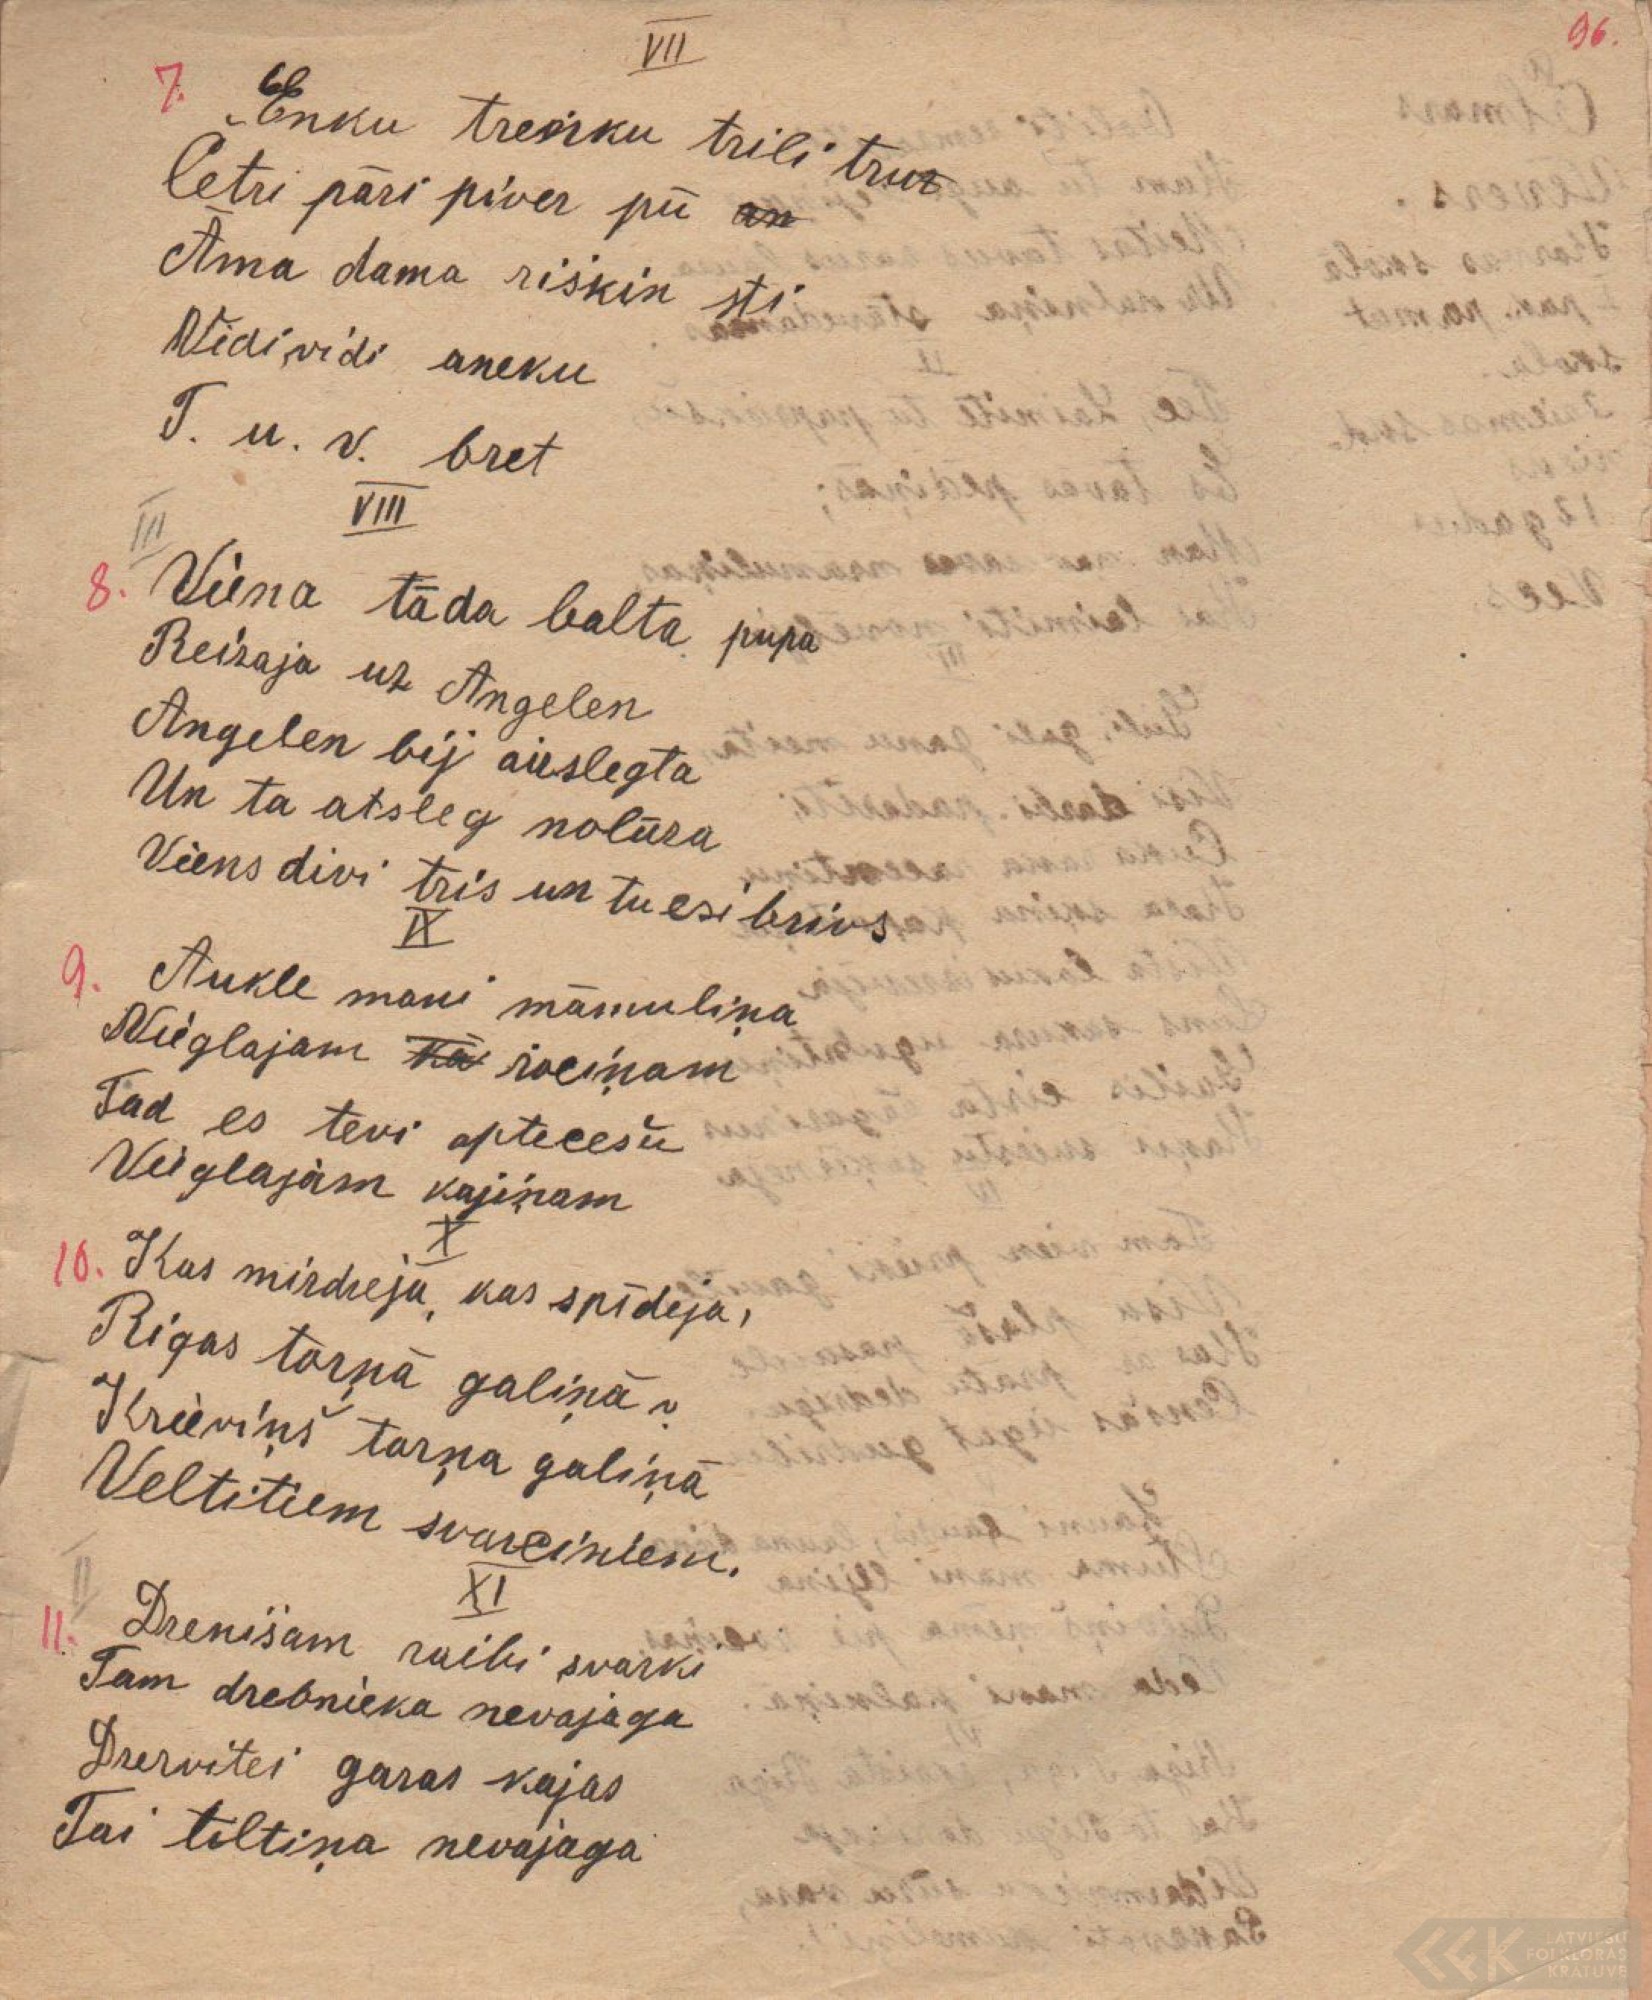 96.
VII
7. Enku trenku trili tru
Četri pāri piver pū
Āma dama riskin sti
Vidi vidi aneku
T. u. v. bret
VIII
III
8. Viena tāda balta pupa
Reizaja uz Angelen
Angelen bij aizslegta
Un ta atsleg nolūza
Viens divi tris un tu esi brivs
IX
9. Aukle mani māmuliņa
Vieglajam rociņam
Tad es tevi aptecešu
Vieglajām kajiņam
X
10. Kas mirdzeja, kas spīdeja,
Rigas torņā galiņā
Krieviņš torņa galiņā
Veltitiem svarciniem.
XI
II
11. Dzenišam raibi svarki
Tam drebnieka nevajaga
Dzervitei garas kajas
Tai tiltiņa nevajaga
LATVIEŠU
FOLKLORAS
KRĀTUVE